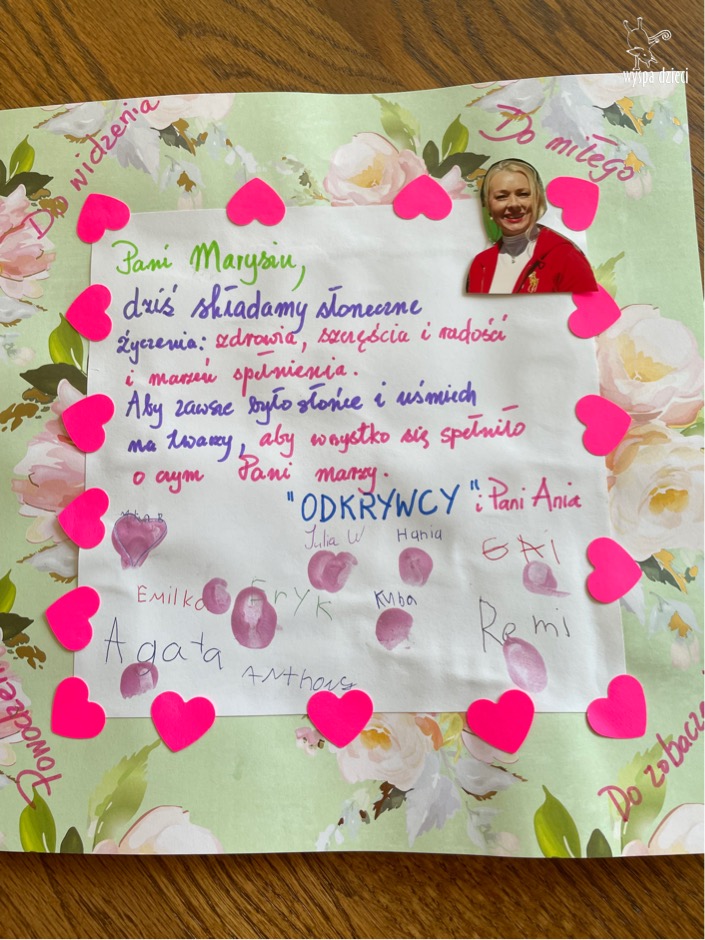 wyspa dzieci
Do widzenia
Do miłego
Pani Marysiu,
dziś składamy słoneczne
życzenia: zdrowia, szczęścia i radości
i marzeń spełnienia.
Aby zawsze było słońce i uśmiech
na twarzy, aby wszystko się spełniło
o czym Pani marzy.
"ODKRYWCY" i Pani Ania
Julia W
Hania
Emilka
Eryk
Kuba
Remi
Agata
Anthony
Powodzen
Do zobacz